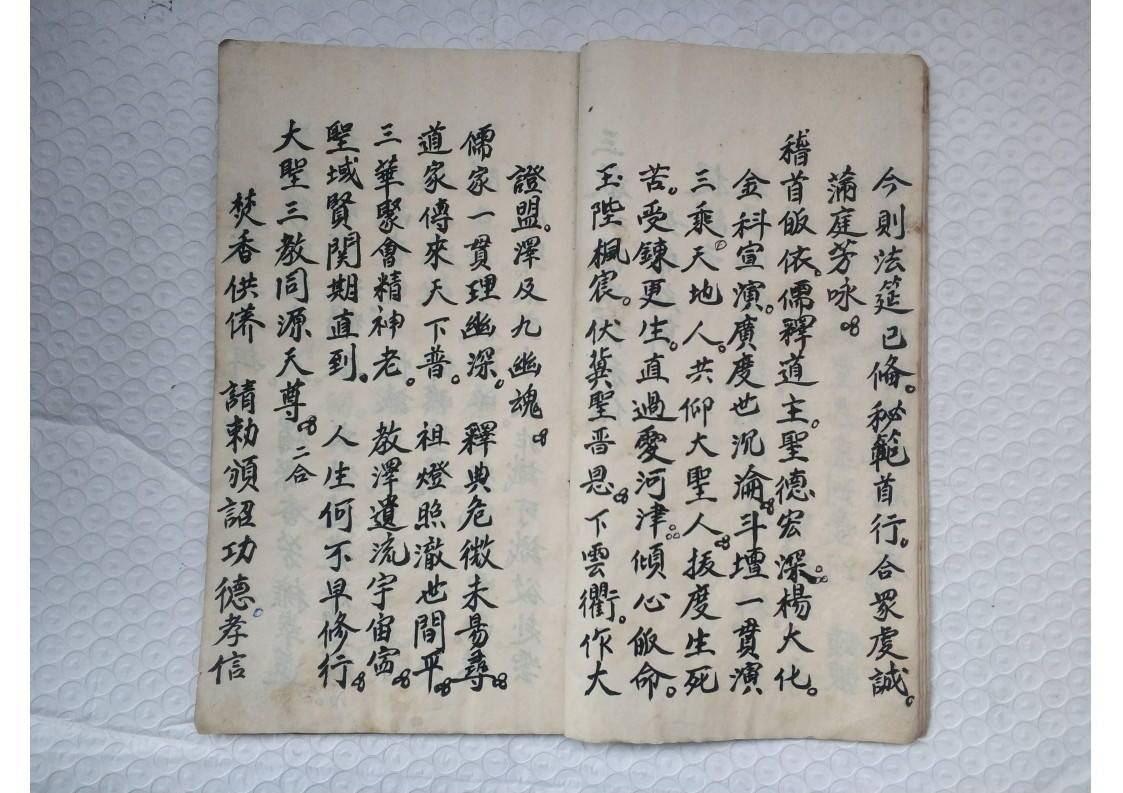 今則法筵已俻。秘範首行。合眾虔誠。
蒲庭芳咏
稽首皈依。儒釋道主。聖德宏深。楊大化。
金科宣演。廣度世沉淪。斗壇一貫演
三乘。天地人。共仰大聖人。拔度生死
苦。受鍊更生。直過愛河津。傾心皈命。
玉陛楓宸。伏冀聖晋恩。下雲衢。作大
證盟。澤及九幽魂
儒家一貫理幽深。釋典危微未易尋。
道家傳來天下普。祖燈照澈世間平。
三華聚會精神老。教澤遺流宇宙
聖域賢関期直到。人生何不早修行
大聖三教同源天尊。二合
焚香供養 請勅頒詔功德孝信